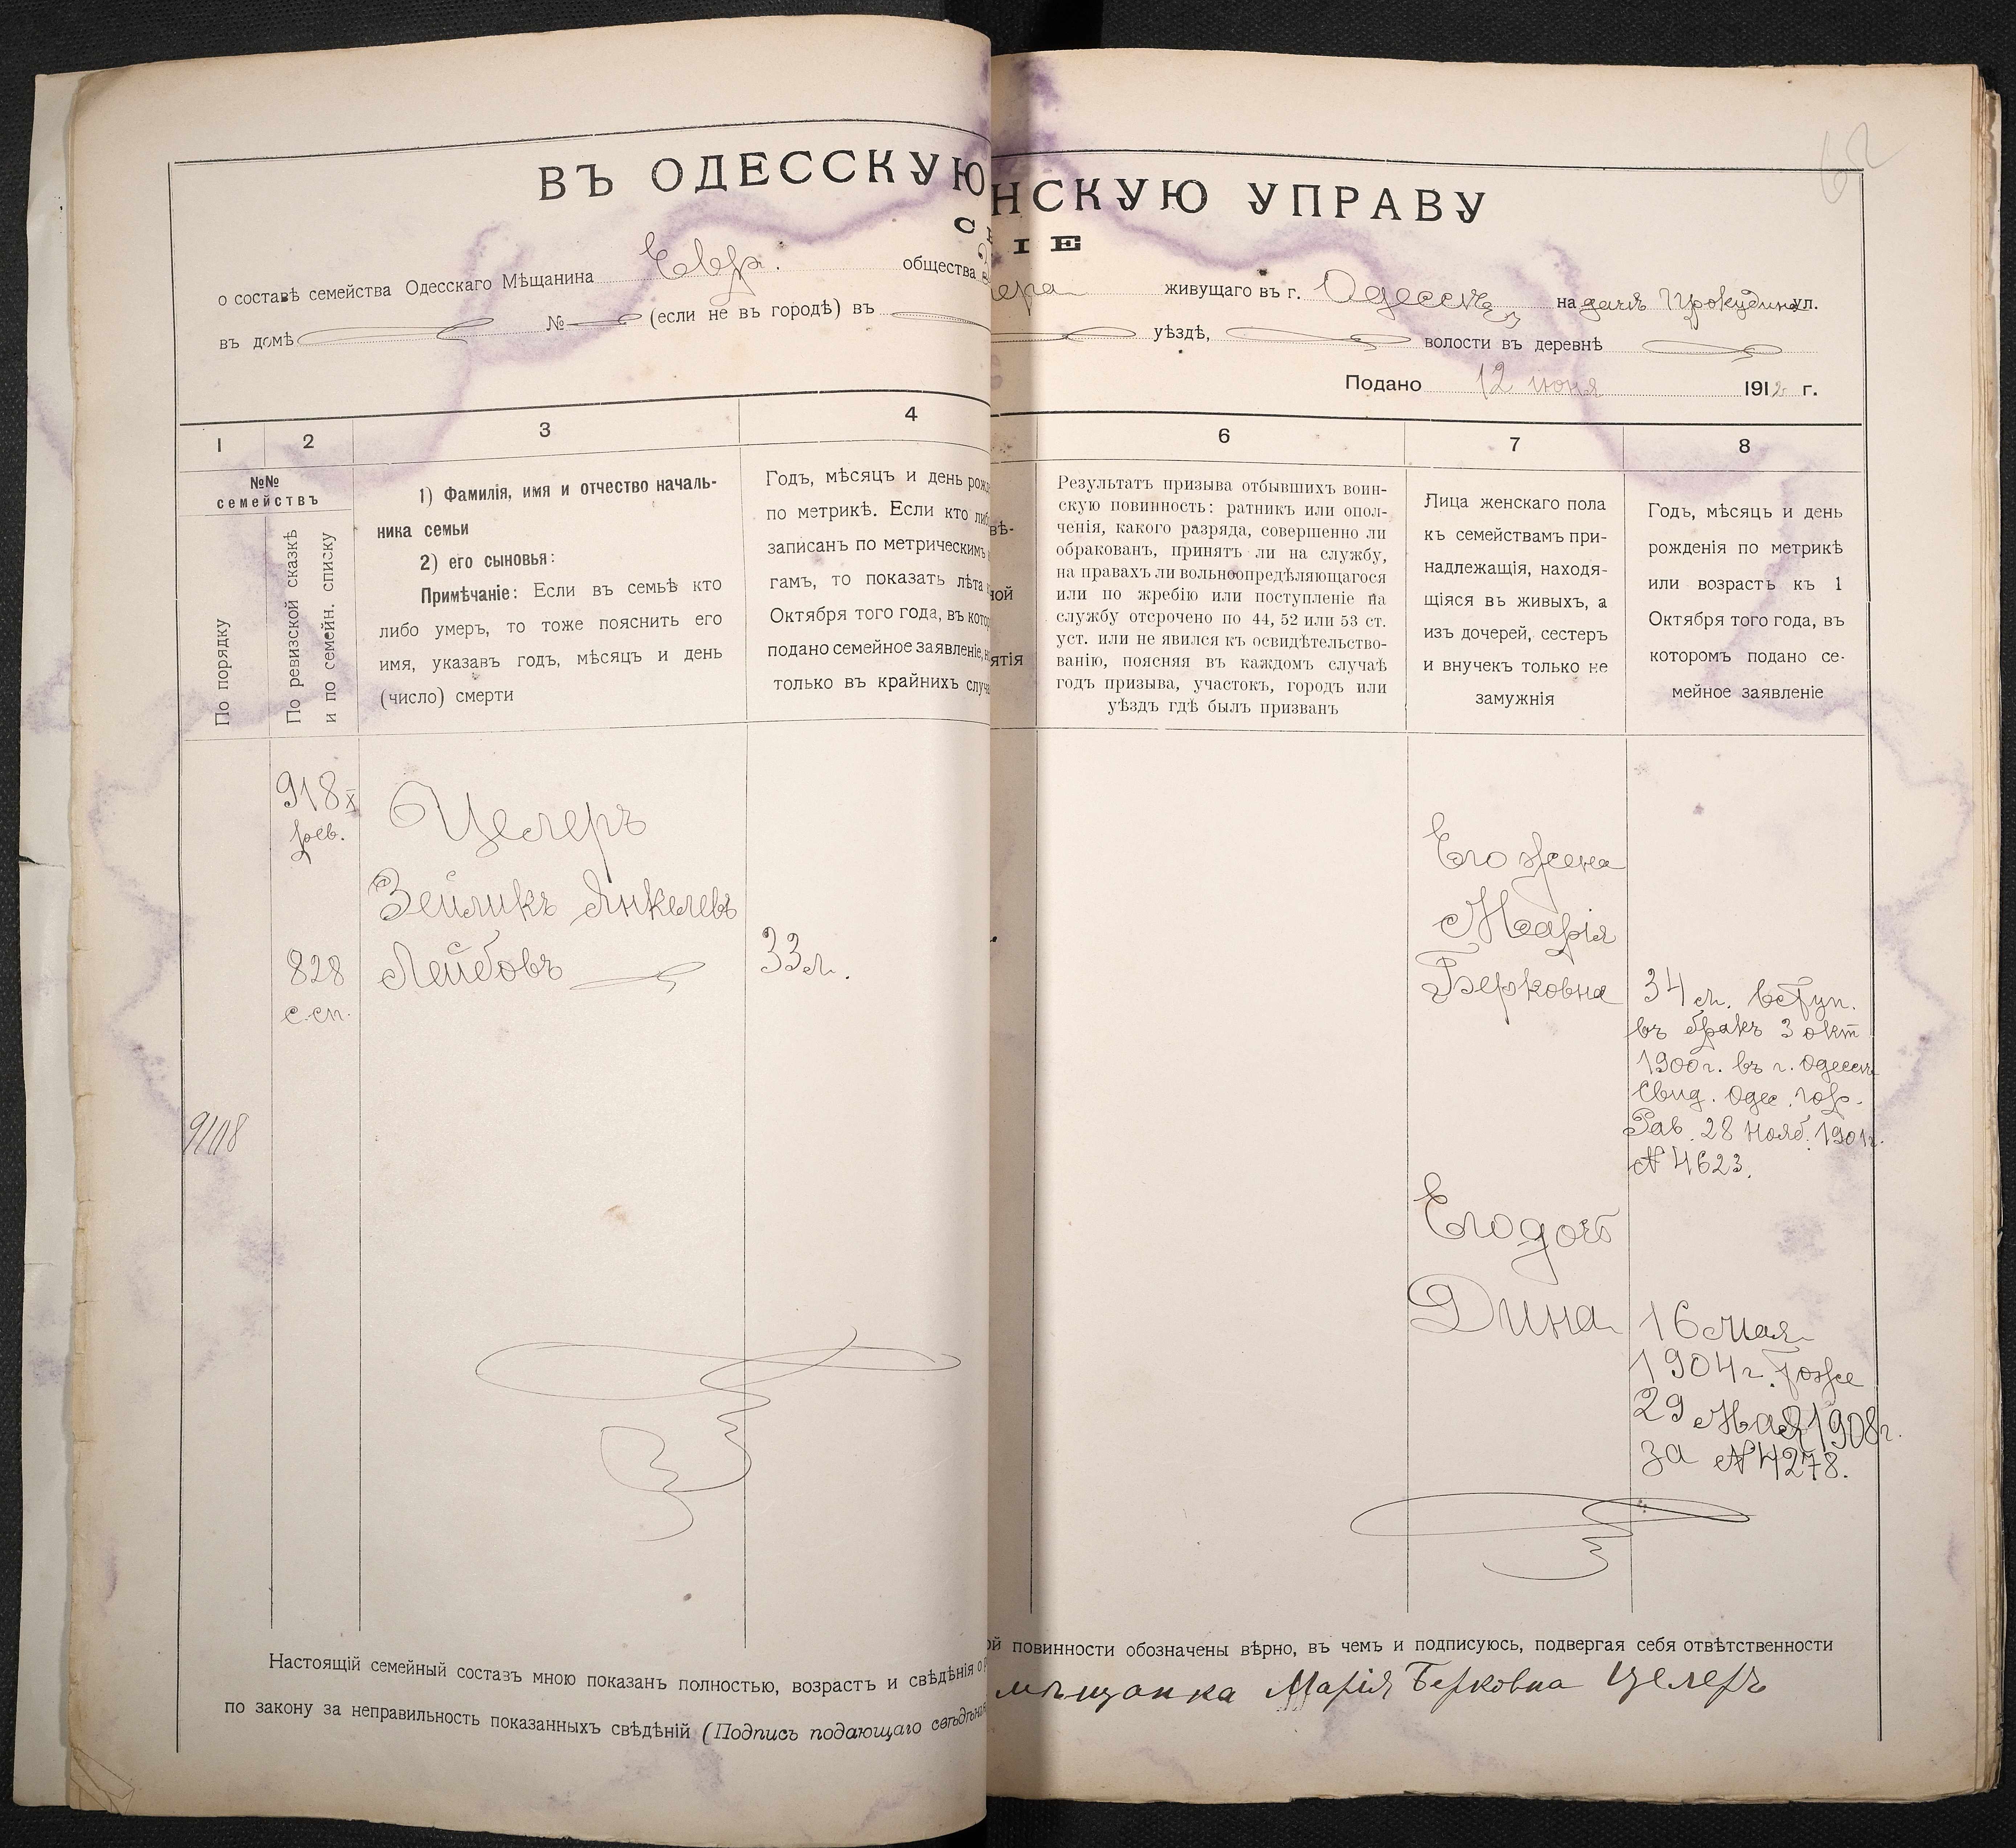 62
ВЪ ОДЕССКУЮ
НСКУЮ УПРАВУ
С
ІЕ
о составѣ семейства Одесскаго Мѣщанина Евр. общества
ера живущаго въ г. Одессѣ на дачѣ Прокудина ул.
въ домѣ № (если не въ городѣ) въ
уѣздѣ, волости въ деревнѣ
Подано 12 июня 1912 г.
1 2 3 4
6 7 8
№№
семействъ
По порядку
По ревизской сказкѣ
и по семейн. списку
1) Фамилія, имя и отчество началь-
ника семьи
2) его сыновья:
Примѣчаніе: Если въ семьѣ кто
либо умеръ, то тоже пояснить его
имя, указавъ годъ, мѣсяцъ и день
(число) смерти
Годъ, мѣсяцъ и день рож
по метрикѣ. Если кто либ
записанъ по метрическимъ
гамъ, то показать лѣта
Октября того года, въ кото
подано семейное заявленіе,
только въ крайнихъ случа
вѣ-
ной
ятія
Результатъ призыва отбывшихъ воин-
скую повинность: ратникъ или опол-
ченія, какого разряда, совершенно ли
обракованъ, принятъ ли на службу,
на правахъ ли вольноопредѣляющагося
или по жребію или поступленіе на
службу отсрочено по 44, 52 или 53 ст.
уст. или не явился къ освидѣтельство-
ванію, поясняя въ каждомъ случаѣ
годъ призыва, участокъ, городъ или
уѣздъ гдѣ былъ призванъ
Лица женскаго пола
къ семействамъ при-
надлежащія, находя-
щіяся въ живыхъ, а
изъ дочерей, сестеръ
и внучекъ только не
замужнія
Годъ, мѣсяцъ и день
рожденія по метрикѣ
или возрастъ къ 1
Октября того года, въ
которомъ подано се-
мейное заявленіе
918 X
рев.
828
с.сп.
9108
Целеръ
Зейликъ Янкелевъ
Лейбовъ
33 л.
Его жена
Марія
Берковна
34 л. вступ.
въ бракъ 3 окт
1900 г. въ г. Одессѣ
Свид. Одес. гор.
Рав. 28 Нояб. 1901 г.
№ 4623.
Его дочь
Дина
16 мая
1904 г. тоже
29 Мая 1908 г.
за № 4278.
Настоящій семейный составъ мною показанъ полностью, возрастъ и свѣдѣнія о
ой повинности обозначены вѣрно, въ чемъ и подписуюсь, подвергая себя отвѣтственности
по закону за неправильность показанныхъ свѣдѣній (Подпись подающаго свѣдѣнія
мѣщанка Марія Берковна Целеръ